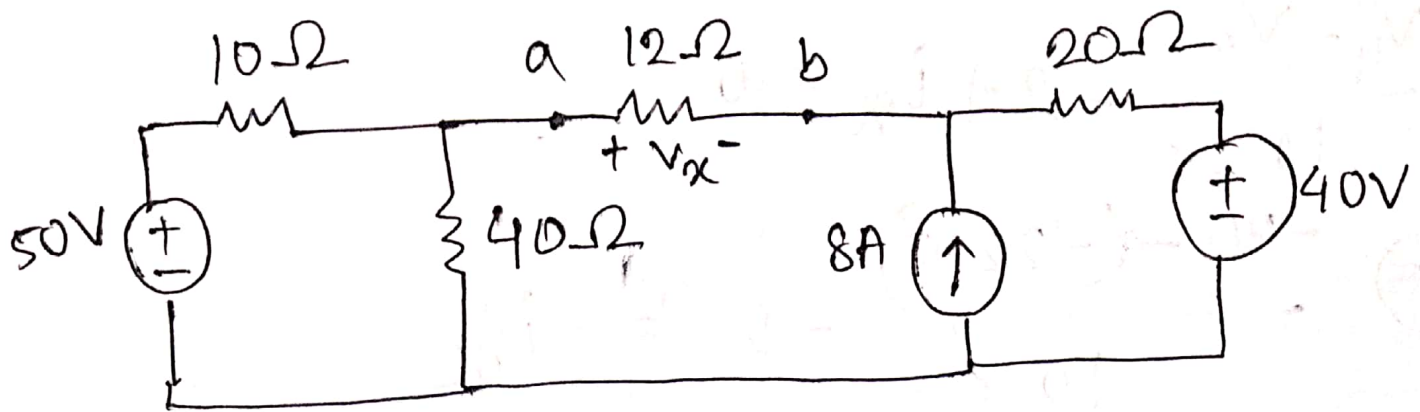 10Ω a 12Ω b 20Ω
+ Vx -
50V + - 40Ω 8A ↑ + - 40V